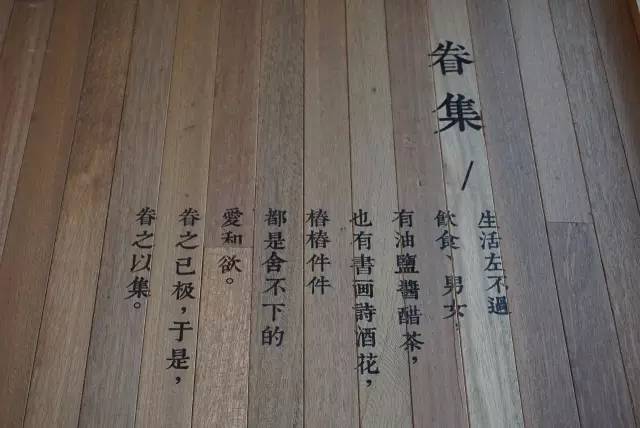 眷集/
生活左不過
飲食、男女,
有油鹽醬醋茶,
也有書画詩酒花,
樁樁件件
都是舍不下的
愛和欲。
眷之已极,于是,
眷之以集。